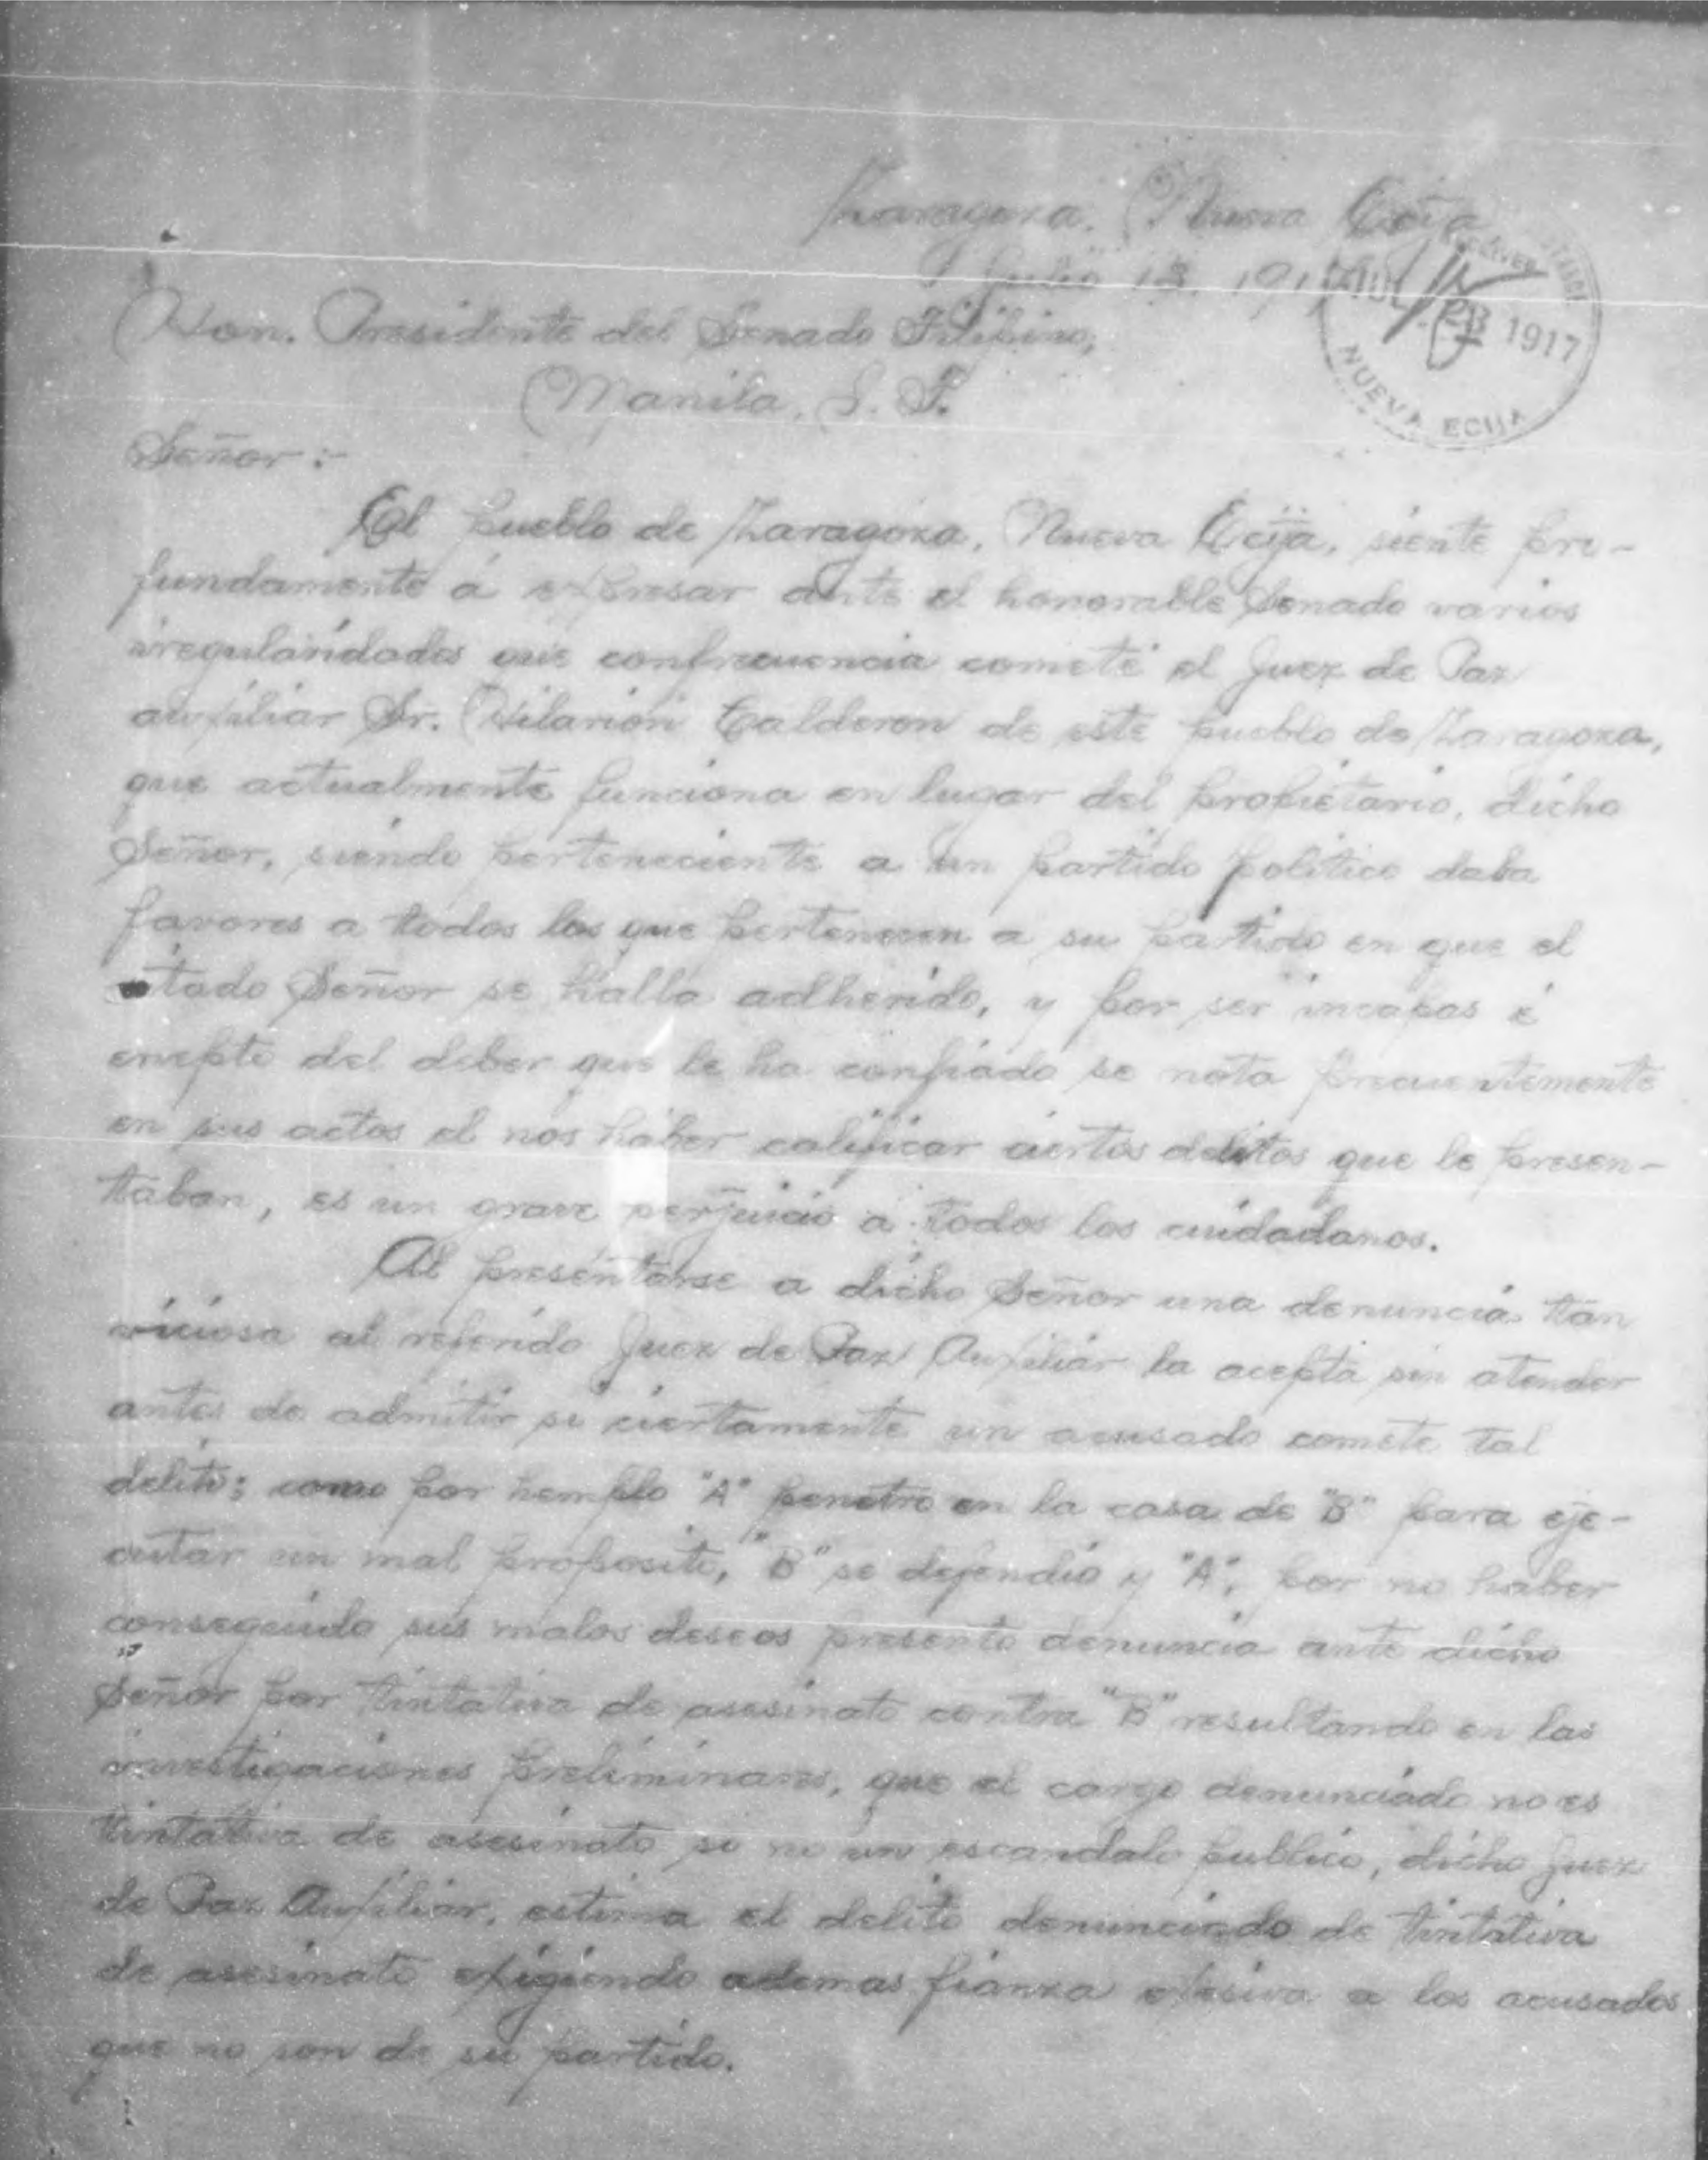 Zaragoza, Nueva Ecija
Julio 13, 191
RECEIVED
JUL 23 1917
NUEVA ECIJA
Hon. Presidente del Senado Filipino,
Manila, I. F.
Señor:-
El pueblo de Zaragoza, Nueva Ecija, siente pro-
fundamente á expresar ante el honorable Senado varios
irregularidades que confrecuencia comete el Juez de Paz
auxiliar Sr. Hilarion Calderon de este pueblo de Zaragoza,
que actualmente funciona en lugar del propietario, dicho
Señor, siendo perteneciente a un partido politico daba
favores a todos los que pertenecen a su partido en que el
citado Señor se halla adherido, y por ser incapas é
enepto del deber que le ha confiado se nota frecuentemente
en sus actos el nos haber calificar ciertos delitos que le presen-
taban, es un grave perjuicio a todos los cuidadanos.
Al presentarse a dicho Señor una denuncia tan
viciosa al referido Juez de Paz Auxiliar la acepta sin atender
antes de admitir si ciertamente un acusado comete tal
delito; como por hemplo "A" penetro en la casa de "B" para eje-
cutar un mal proposito, "B" se defendió y "A", por no haber
conseguido sus malos deseos presento denuncia ante dicho
Señor por tintativa de asesinato contra "B" resultando en las
investigaciones preliminares, que el cargo denunciado no es
tintativa de asesinato si no un escandalo publico, dicho Juez
de Paz Auxiliar, estima el delito denunciado de tintativa
de asesinato exigiendo ademas fianza exesiva a los acusados
que no son de su partido.